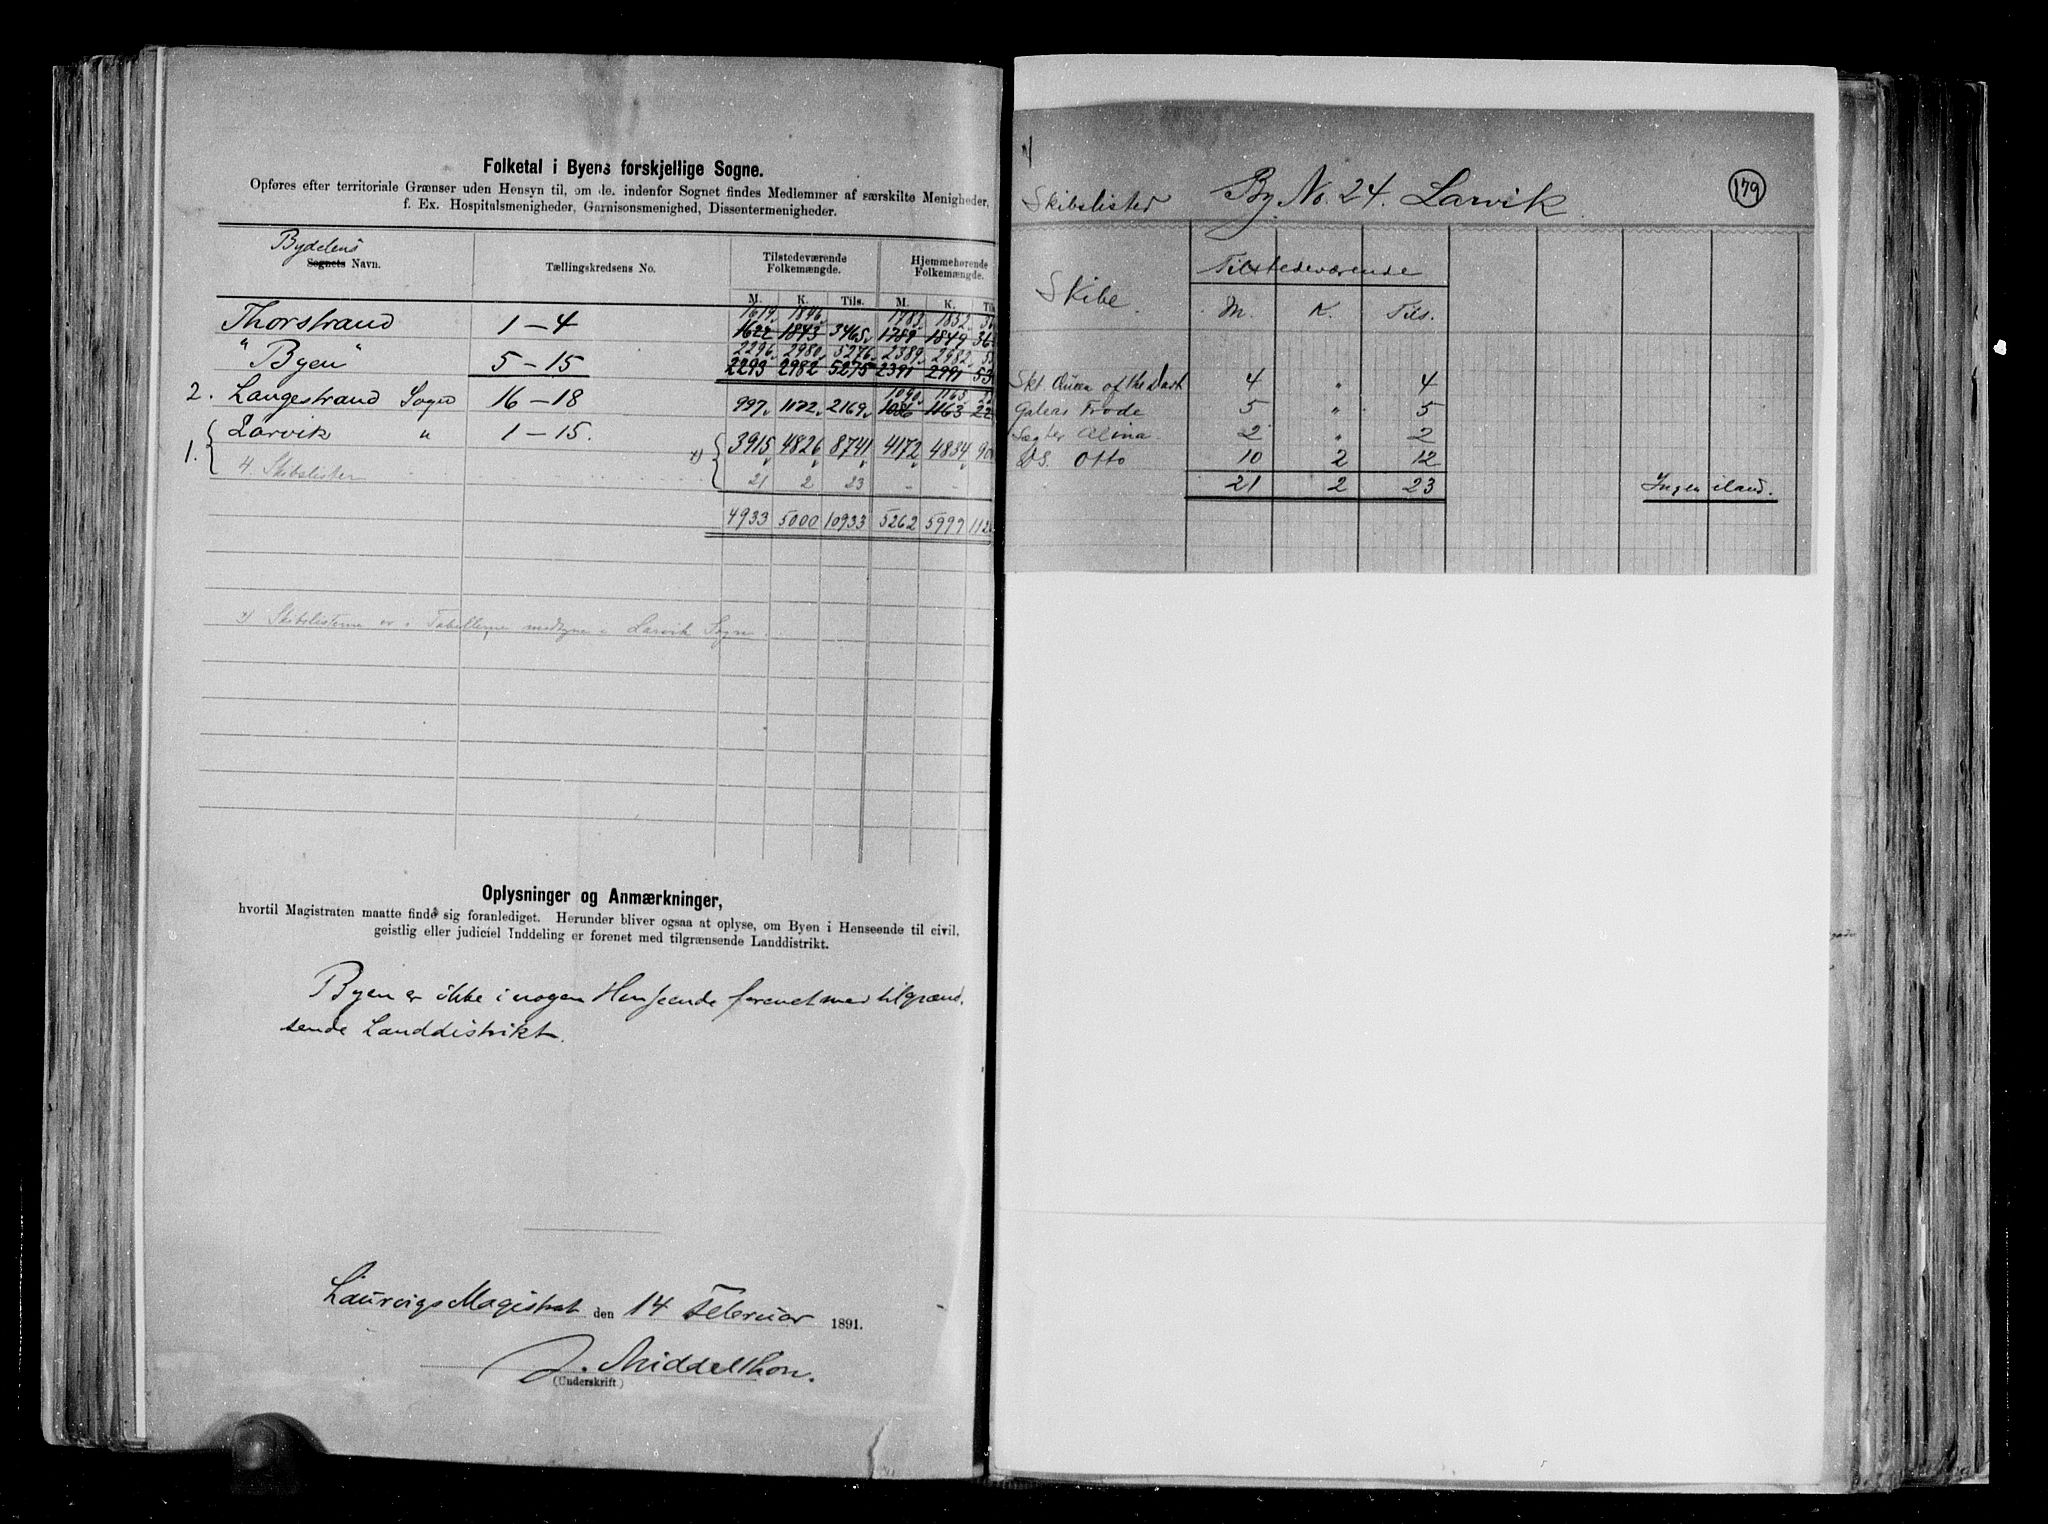 Folketal i Byens forskjellige Sogne.
Opføres efter territoriale Grænser uden Hensyn til, om de. indenfor Sognet findes Medlemmer af særskilte Menigheder,
f. Ex. Hospitalsmenigheder, Garnisonsmenighed, Dissentermenigheder.
Bydelens
Sognets Navn. Tællingskredsens No. Tilstedeværende Folkemængde. Hjemmehørende Folkemængde.
M. K. Tils. M. K. Til
1619 1846 1788 1852
Thorstrand 1 – 4 1622 1843 3465 1789 1849 36
2296 2980 5276 2389 2982
"Byen" 5 – 15 2293 2982 5275 2391 2991 53
1090 1165
2. Langestrand Sogn 16 – 18 997 1172 2169 1086 1163 22
1. Larvik " 1 – 15. 3915 4826 8741 4172 4834 90
4. Skibslister 21 2 23 - -
4933 5000 10933 5262 5999 112
*) Skibslisterne er i Tabellerne medtagne i Larvik Sogn.
Oplysninger og Anmærkninger,
hvortil Magistraten maatte finde sig foranlediget. Herunder bliver ogsaa at oplyse, om Byen i Henseende til civil,
geistlig eller judiciel Inddeling er forenet med tilgrænsende Landdistrikt.
Byen er ikke i nogen Henseende forenet med tilgræn-
sende Landdistrikt.
Laurvigs Magistrat den 14 Februar 1891.
J. Middelthon.
(Underskrift)
Skibslister By No. 24. Larvik 179
Tilstedeværende
Skibe. M. K. Tils.
Skt Queen of the East 4 " 4
Galeas Frode 5 " 5
Sægter Alina 2 " 2
DS. Otto 10 2 12
21 2 23 Ingen iland.